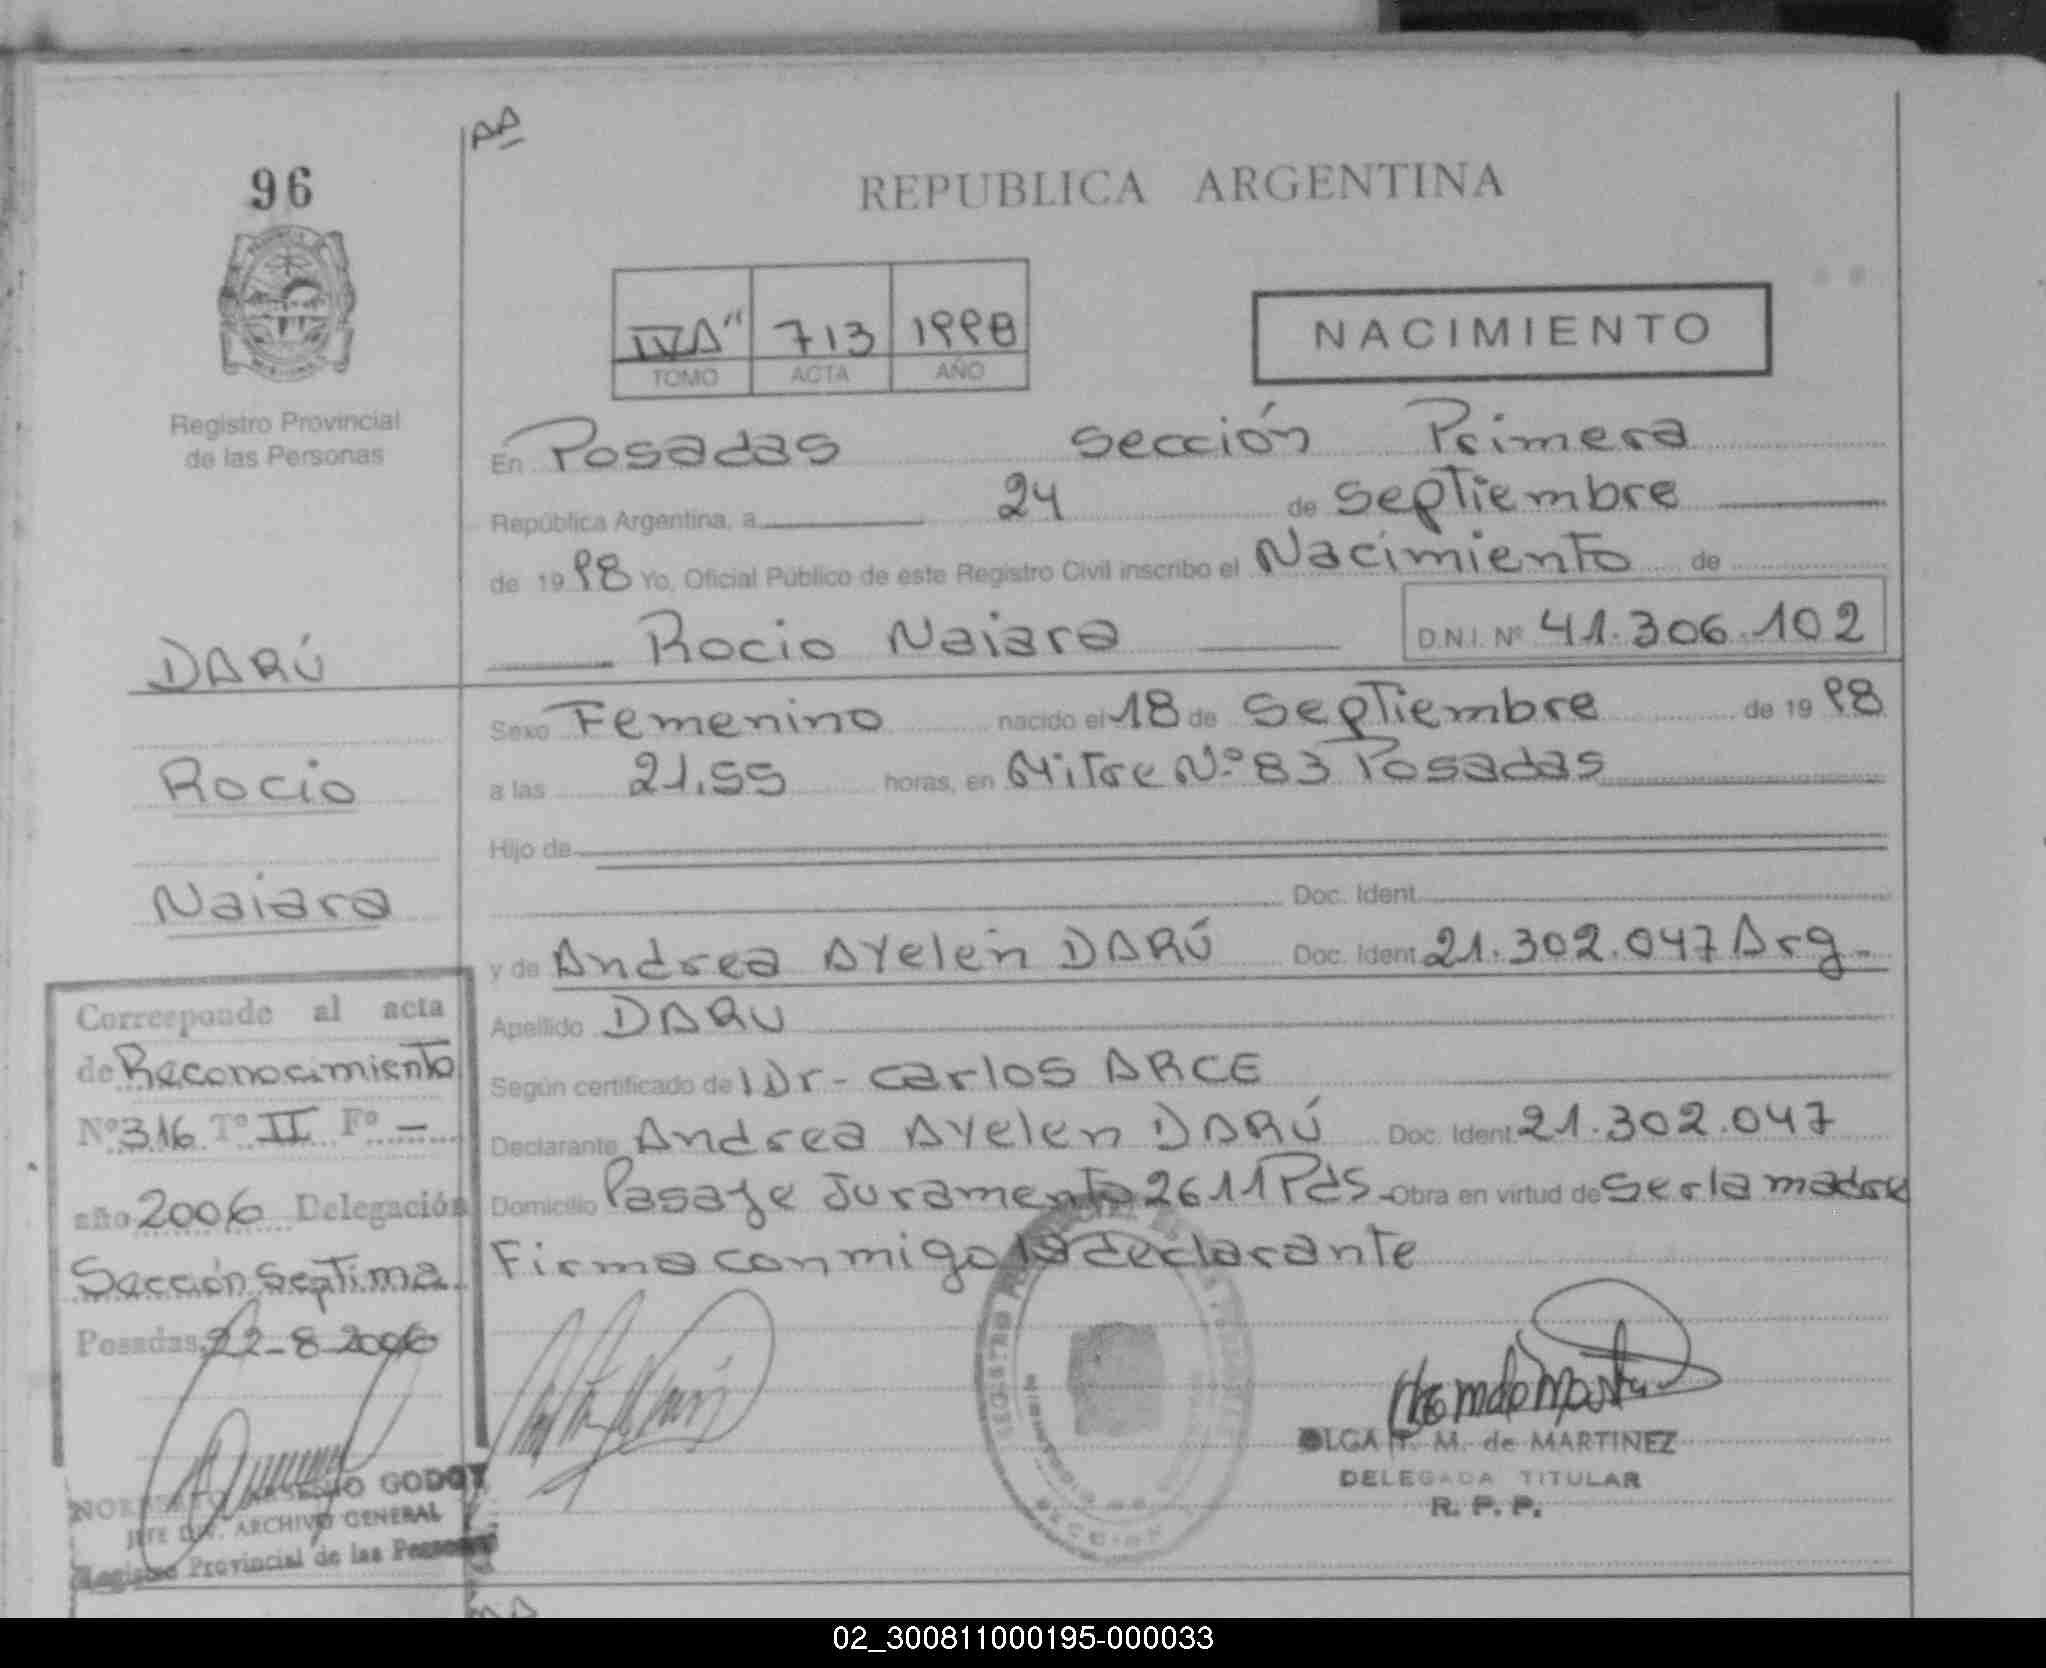 AA
96
REPUBLICA ARGENTINA
IVA" 713 1998
TOMO ACTA AÑO
NACIMIENTO
Registro Provincial
de las Personas
En Posadas sección Primera
República Argentina, a 24 de septiembre
de 1998 Yo, Oficial Público de este Registro Civil inscribo el Nacimiento de
Rocio Naiara D.N.I. Nº 41.306.102
DARÚ
Sexo Femenino nacido el 18 de septiembre de 1998
Rocio
a las 21,55 horas, en Mitre N.º 83 Posadas
Hijo de
Naiara
Doc. Ident.
y de Andrea Ayelén DARÚ Doc. Ident. 21.302.047 Arg.
Apellido DARU
Según certificado de Dr - carlos ARCE
Declarante Andrea Ayelen DARÚ Doc. Ident. 21.302.047
Domicilio Pasaje Juramento 2611 Pds. Obra en virtud de ser la madre
Firma conmigo la declarante
Corresponde al acta
de Reconocimiento
Nº 316 Tº II Fº -
año 2006 Delegación
Sección Septima
Posadas, 22-8-2006
GODOY
JEFE DIV. ARCHIVO GENERAL
Registro Provincial de las Personas
OLGA T. M. de MARTINEZ
DELEGADA TITULAR
R. P. P.
02_300811000195-000033